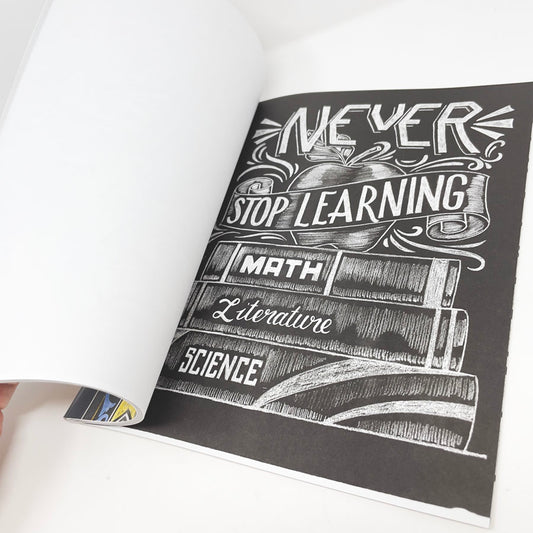 NEVER
STOP LEARNING
MATH
Literature
SCIENCE